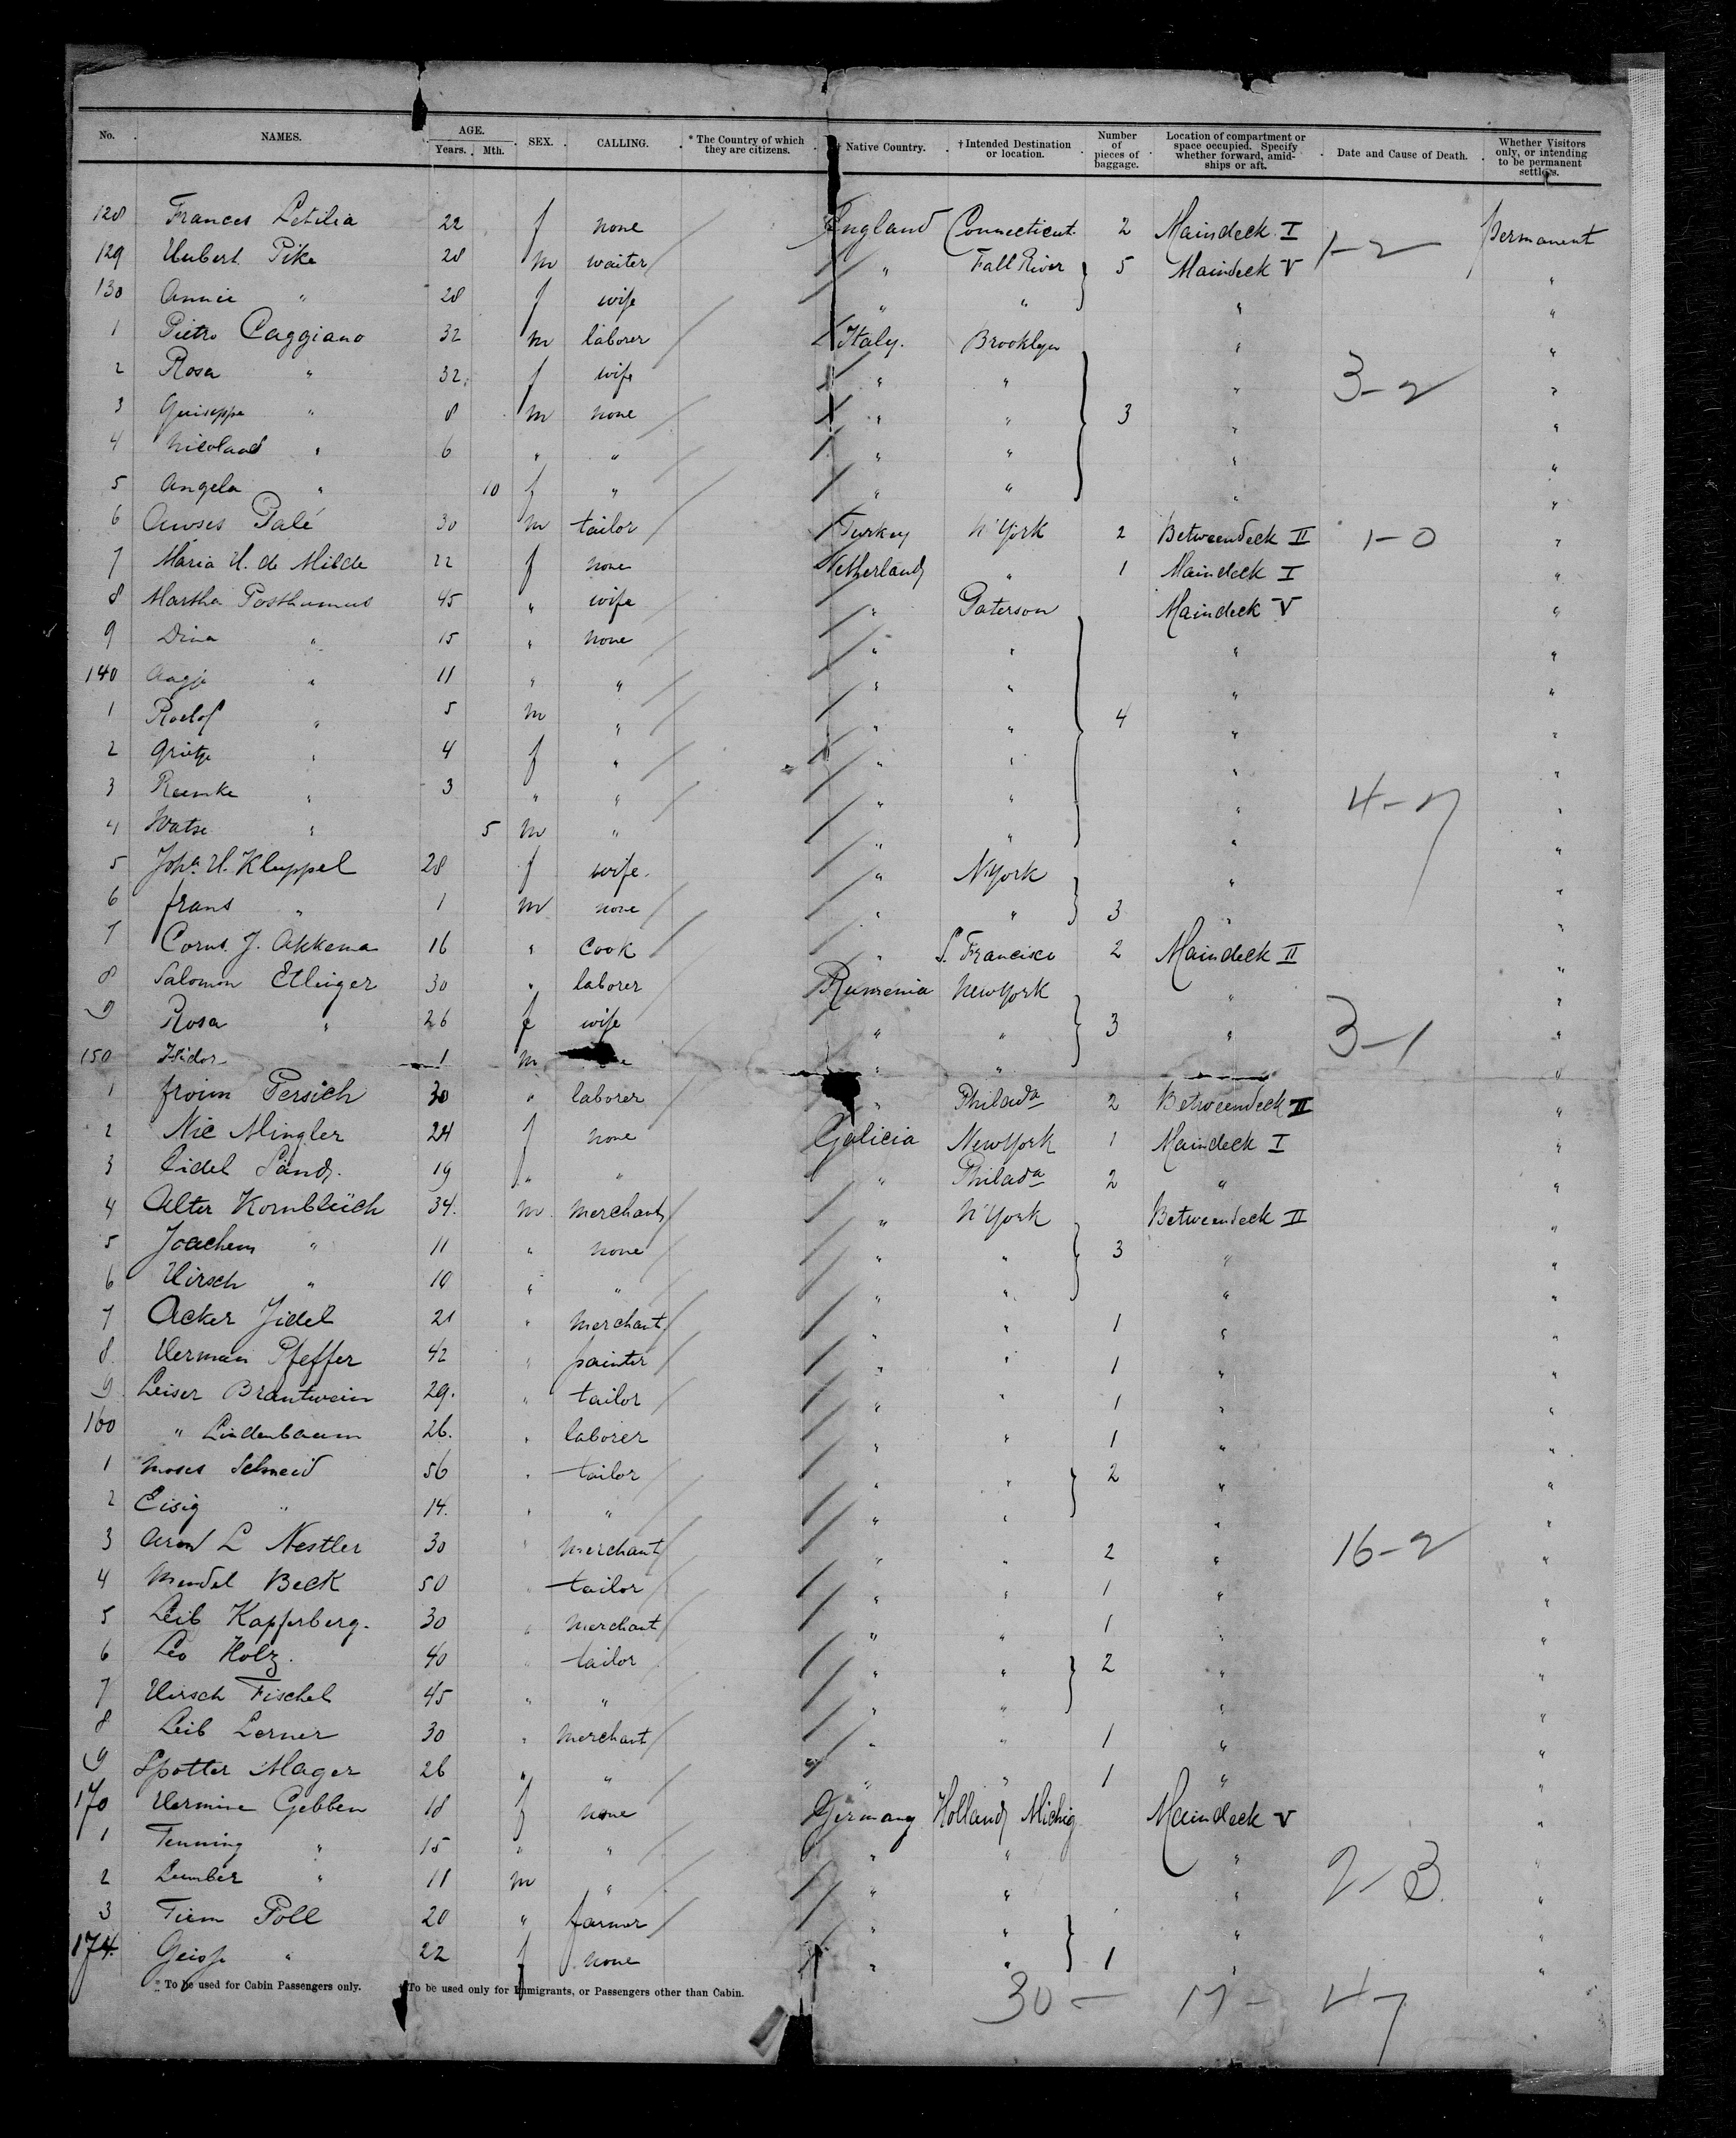 No. NAMES. AGE. Years. Mth. SEX. CALLING. * The Country of which they are citizens. † Native Country. † Intended Destination or location. Number of pieces of baggage. Location of compartment or space occupied. Specify whether forward, amidships or aft. Date and Cause of Death. Whether Visitors only, or intending to be permanent settlers.
128 Frances Letilia 22 f none England Connecticut 2 Maindeck I 1-2 permanent
129 Hubert Pike 28 m waiter " Fall River 5 Maindeck V "
130 Annie " 28 f wife " " " "
1 Pietro Caggiano 32 m laborer Italy. Brooklyn " "
2 Rosa " 32 f wife " " " 3-2 "
3 Guiseppe " 8 m none " " 3 " "
4 " 6 " " " " " "
5 Angela " 10 f " " " " "
6 Palé 30 m tailor Turkey N'York 2 Betweendeck II 1-0 "
7 Maria H. de Milde 22 f none Netherland " 1 Maindeck I "
8 Martha Posthumus 45 " wife " Paterson Maindeck V "
9 Dina " 15 " none " " " "
140 Aagje " 11 " " " " " "
1 Roelof " 5 m " " " 4 " "
2 Grietje " 4 f " " " " "
3 Reemke " 3 " " " " " 4-7 "
4 Watse " 5 m " " " " "
5 Joha. H. Kluppel 28 f wife. " N.York " "
6 frans " 1 m none " " 3 " "
7 Corns. J. Akkema 16 " cook " S. Francisco 2 Maindeck II "
8 Salomon Etlinger 30 " laborer Rumenia New York " "
9 Rosa " 26 f wife " " 3 " 3-1 "
150 Isidor 1 m " " "
1 froim Persich 30 " laborer " Philada 2 Betweendeck II "
2 Nie Mingler 24 f none Galicia New York 1 Maindeck I "
3 Eidel Sand 19 f " " " Philada 2 " "
4 Alter Kornblüch 34. m. merchant " N'York Betweendeck II "
5 Joachem " 11 " none " " 3 " "
6 Hirsch " 10 " " " " " "
7 Acker Jidel 21 " merchant " " 1 " "
8. Herman Pfeffer 42 " painter " " 1 " "
9. Leiser Brantwein 29. " tailor " " 1 " "
160 " Lindenbaum 26. " laborer " " 1 " "
1 Moses Schneid 56 " tailor " " 2 " "
2 Eisig " 14. " " " " " "
3 Aron L Nestler 30 " merchant " " 2 " 16-2 "
4 Mendel Beck 50 " tailor " " 1 " "
5 Leib Kapferberg. 30 " merchant " " 1 " "
6 Leo Holz. 40 " tailor " " 2 " "
7 Hirsch Fischel 45 " " " " " "
8 Leib Lerner 30 " merchant " " 1 " "
9 Spotter Mager 26 " " " " 1 " "
170 Hermine Gebben 18 f none Germany Holland Michig Maindeck V "
1 Fenning " 15 " " " " " "
2 Lumber " 11 m " " " " 2-3. "
3 Tiem Poll 20 " farmer " " " "
174. " 22 f none " " 1 " "
* To be used for Cabin Passengers only. † To be used only for Immigrants, or Passengers other than Cabin.
30 - 17 - 47